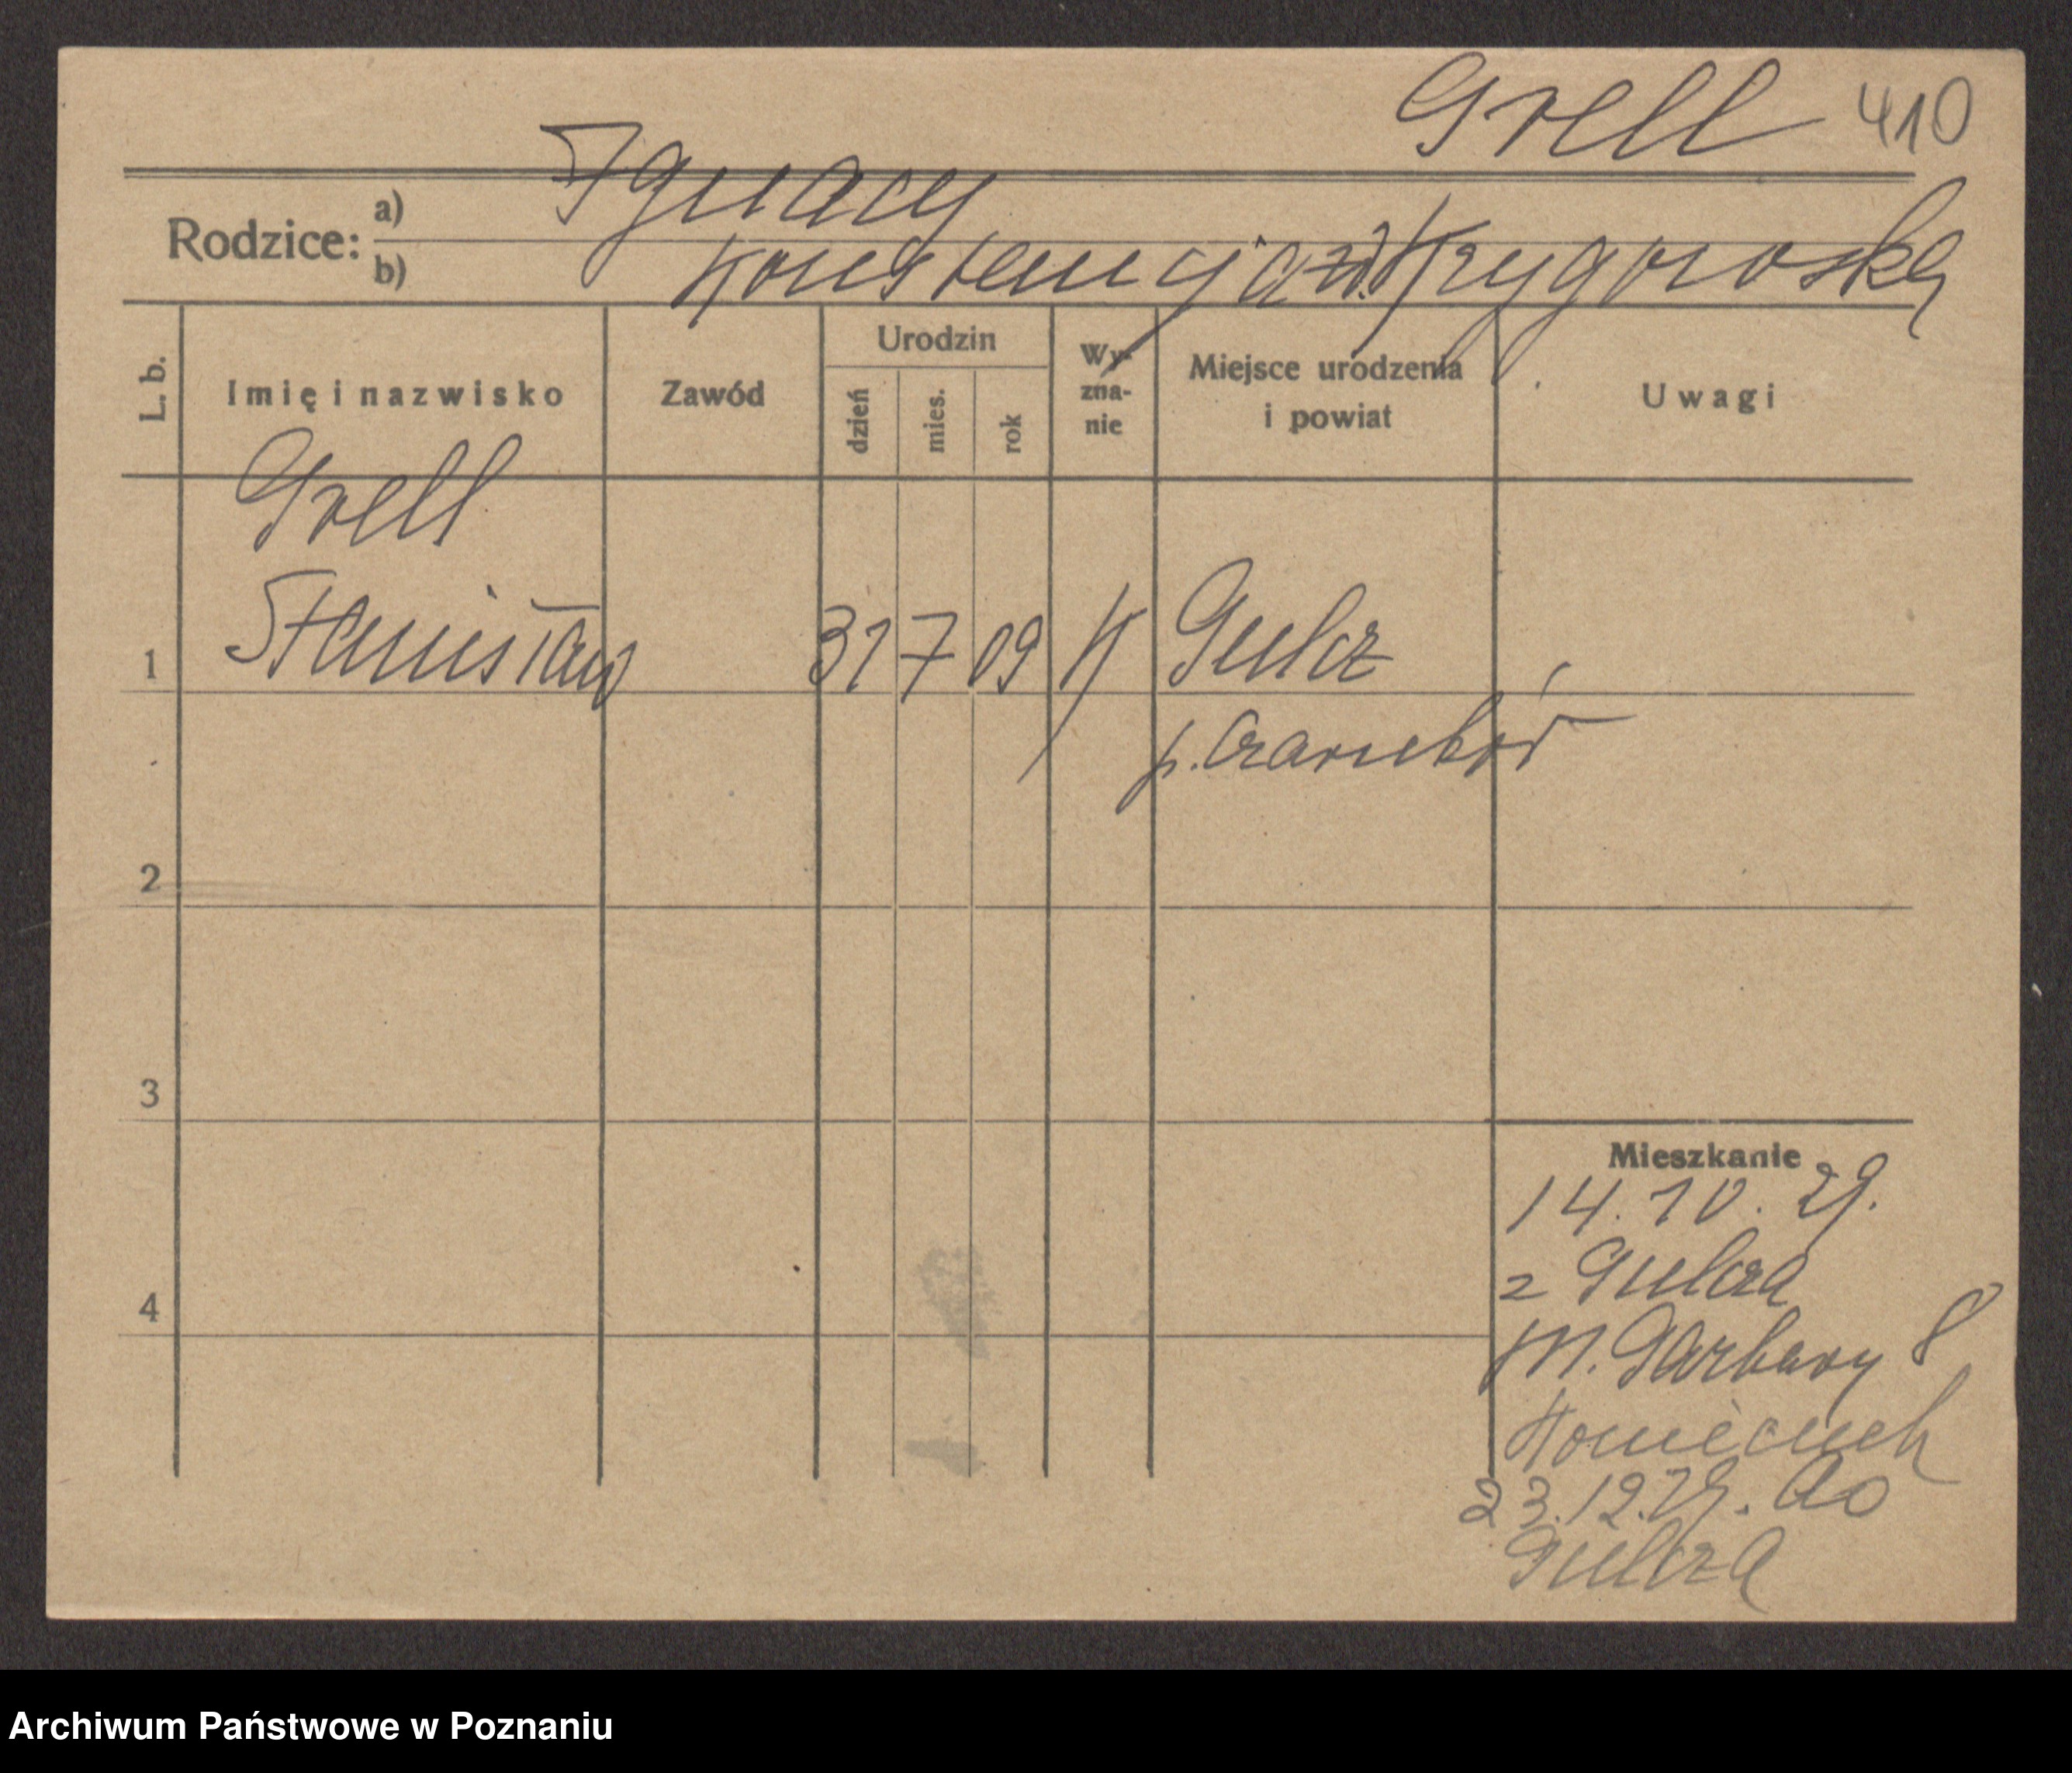 Grell 410
Rodzice: a) Ignacy
b) Konstancja zd. Krygowska
L. b.
Imię i nazwisko
Zawód
Urodzin
dzień
mies.
rok
Wy-
zna-
nie
Miejsce urodzenia
i powiat
Uwagi
Grell
1 Stanisław 31 7 09 K Gulcz
p. Czarnków
2
3
4
Mieszkanie
14. 10. 29.
z Gulcza
M. Garbary 8
23. 12. 29. do
Gulcza
Archiwum Państwowe w Poznaniu